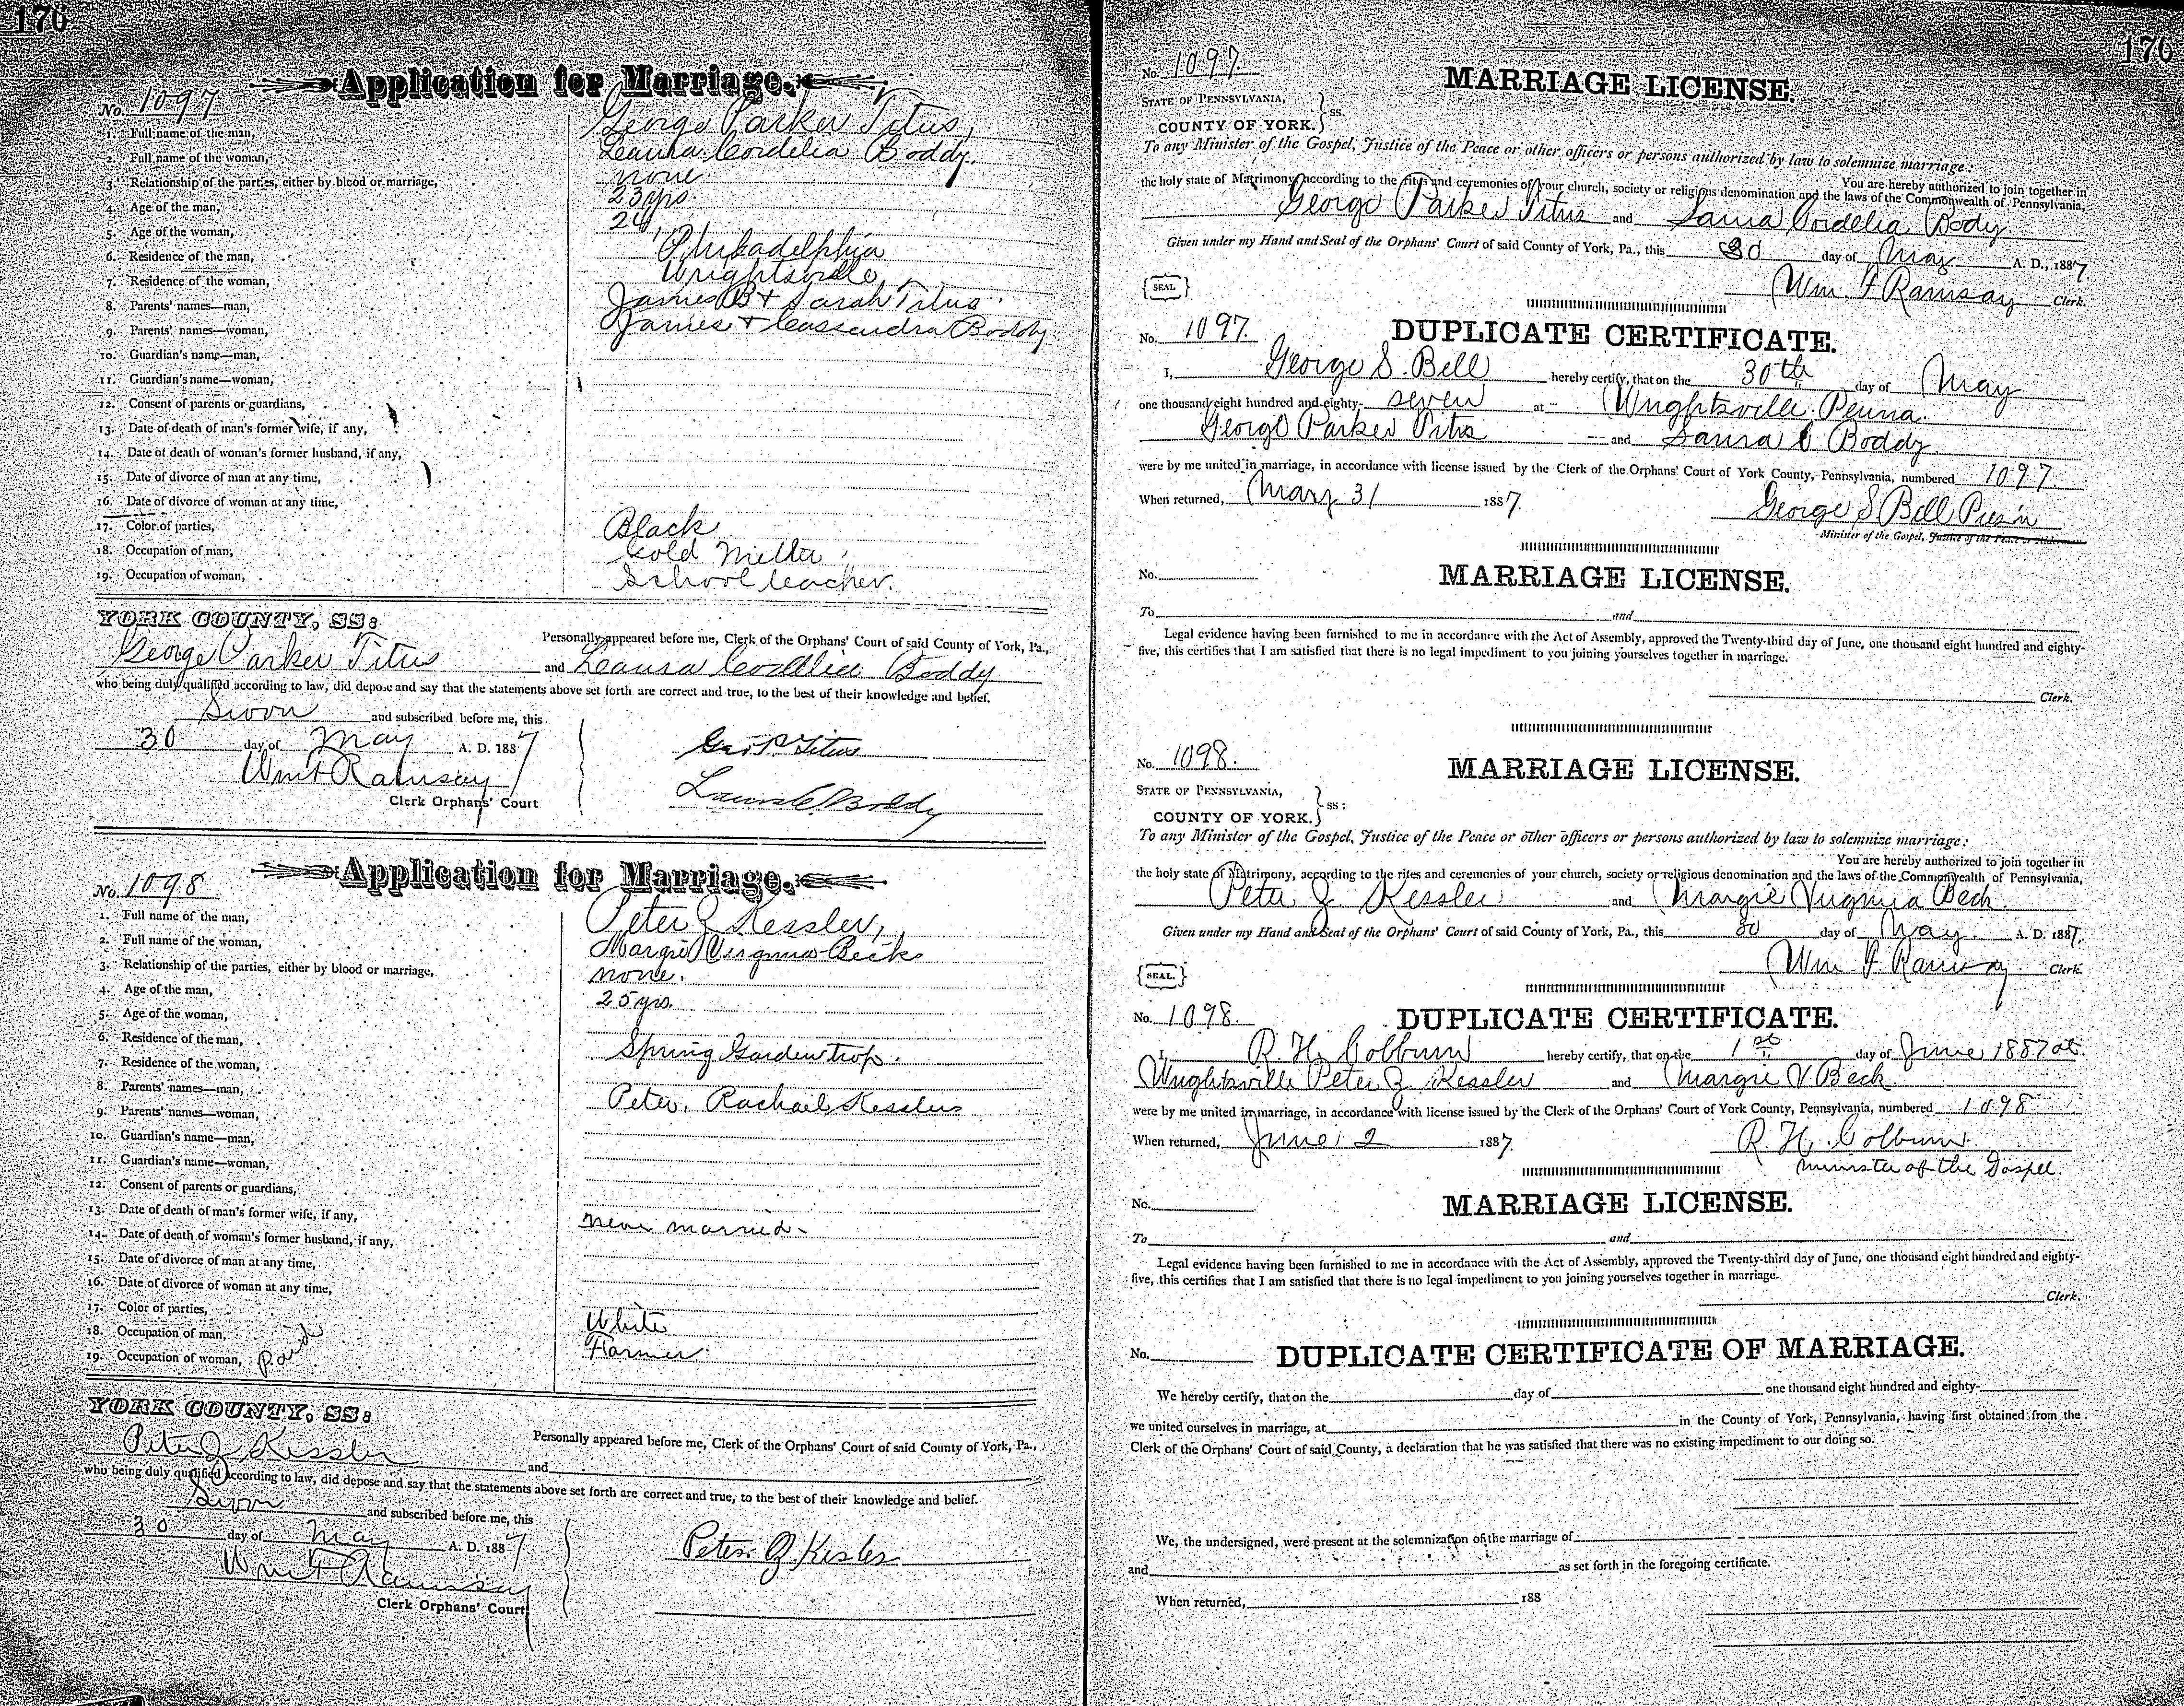 176
Application for Marriage.
No. 1097
1. Full name of the man, George Parker Titus,
2. Full name of the woman, Laura Cordelia Boddy.
3. Relationship of the parties, either by blood or marriage, none
4. Age of the man, 23 yrs.
5. Age of the woman, 24 "
6. Residence of the man, Philadelphia
7. Residence of the woman, Wrightsville,
8. Parents' names—man, James B + Sarah Titus.
9. Parents' names—woman, James + Cassandra Boddy
10. Guardian's name—man,
11. Guardian's name—woman,
12. Consent of parents or guardians,
13. Date of death of man's former wife, if any,
14. Date of death of woman's former husband, if any,
15. Date of divorce of man at any time,
16. Date of divorce of woman at any time,
17. Color of parties, Black
18. Occupation of man, Gold Melter
19. Occupation of woman, School teacher.
YORK COUNTY, SS:
Personally appeared before me, Clerk of the Orphans' Court of said County of York, Pa.,
George Parker Titus and Laura Cordelia Boddy
who being duly qualified according to law, did depose and say that the statements above set forth are correct and true, to the best of their knowledge and belief.
Sworn and subscribed before me, this
30 day of May A. D. 1887
Wm F Ramsay
Clerk Orphans' Court
Geo. P. Titus
Laura C. Boddy
Application for Marriage.
No. 1098
1. Full name of the man, Peter Z Kessler,
2. Full name of the woman, Margie Virginia Beck
3. Relationship of the parties, either by blood or marriage, none.
4. Age of the man, 25 yrs.
5. Age of the woman,
6. Residence of the man, Spring Garden twp.
7. Residence of the woman,
8. Parents' names—man, Peter, Rachael Kessler
9. Parents' names—woman,
10. Guardian's name—man,
11. Guardian's name—woman,
12. Consent of parents or guardians,
13. Date of death of man's former wife, if any, never married
14. Date of death of woman's former husband, if any,
15. Date of divorce of man at any time,
16. Date of divorce of woman at any time,
17. Color of parties, White
18. Occupation of man, Farmer
19. Occupation of woman, paid
YORK COUNTY, SS:
Personally appeared before me, Clerk of the Orphans' Court of said County of York, Pa.,
Peter Z Kessler and
who being duly qualified according to law, did depose and say that the statements above set forth are correct and true, to the best of their knowledge and belief.
Sworn and subscribed before me, this
30 day of May A. D. 1887
Wm F Ramsay
Clerk Orphans' Court
Peter Z. Kesler
176
No. 1097
MARRIAGE LICENSE.
STATE OF PENNSYLVANIA,
COUNTY OF YORK. } ss.
To any Minister of the Gospel, Justice of the Peace or other officers or persons authorized by law to solemnize marriage:
You are hereby authorized to join together in
the holy state of Matrimony, according to the rites and ceremonies of your church, society or religious denomination and the laws of the Commonwealth of Pennsylvania,
George Parker Titus and Laura Cordelia Body
Given under my Hand and Seal of the Orphans' Court of said County of York, Pa., this 30 day of May A. D., 1887.
{SEAL} Wm. F Ramsay Clerk.
No. 1097.
DUPLICATE CERTIFICATE.
I, George S. Bell hereby certify, that on the 30th day of May
one thousand eight hundred and eighty- seven at Wrightsville, Penna.
George Parker Titus and Laura C Boddy
were by me united in marriage, in accordance with license issued by the Clerk of the Orphans' Court of York County, Pennsylvania, numbered 1097.
When returned, May 31 1887.
George S Bell
Minister of the Gospel, Justice of the Peace or Alderman
No.
MARRIAGE LICENSE.
To and
Legal evidence having been furnished to me in accordance with the Act of Assembly, approved the Twenty-third day of June, one thousand eight hundred and eighty-
five, this certifies that I am satisfied that there is no legal impediment to you joining yourselves together in marriage.
Clerk.
No. 1098.
MARRIAGE LICENSE.
STATE OF PENNSYLVANIA,
COUNTY OF YORK. } ss:
To any Minister of the Gospel, Justice of the Peace or other officers or persons authorized by law to solemnize marriage:
You are hereby authorized to join together in
the holy state of Matrimony, according to the rites and ceremonies of your church, society or religious denomination and the laws of the Commonwealth of Pennsylvania,
Peter Z Kessler and Margie Virginia Beck
Given under my Hand and Seal of the Orphans' Court of said County of York, Pa., this 30 day of May A. D. 1887.
{SEAL.} Wm. F. Ramsay Clerk.
No. 1098.
DUPLICATE CERTIFICATE.
I, R. H. Colburn hereby certify, that on the 1st day of June 1887 at
Wrightsville Peter Z. Kessler and Margie V. Beck
were by me united in marriage, in accordance with license issued by the Clerk of the Orphans' Court of York County, Pennsylvania, numbered 1098
When returned, June 2 1887.
R. H. Colburn.
Minister of the Gospel.
No.
MARRIAGE LICENSE.
To and
Legal evidence having been furnished to me in accordance with the Act of Assembly, approved the Twenty-third day of June, one thousand eight hundred and eighty-
five, this certifies that I am satisfied that there is no legal impediment to you joining yourselves together in marriage.
Clerk.
No.
DUPLICATE CERTIFICATE OF MARRIAGE.
We hereby certify, that on the day of one thousand eight hundred and eighty-
we united ourselves in marriage, at in the County of York, Pennsylvania, having first obtained from the
Clerk of the Orphans' Court of said County, a declaration that he was satisfied that there was no existing impediment to our doing so.
We, the undersigned, were present at the solemnization of the marriage of
and as set forth in the foregoing certificate.
When returned, 188